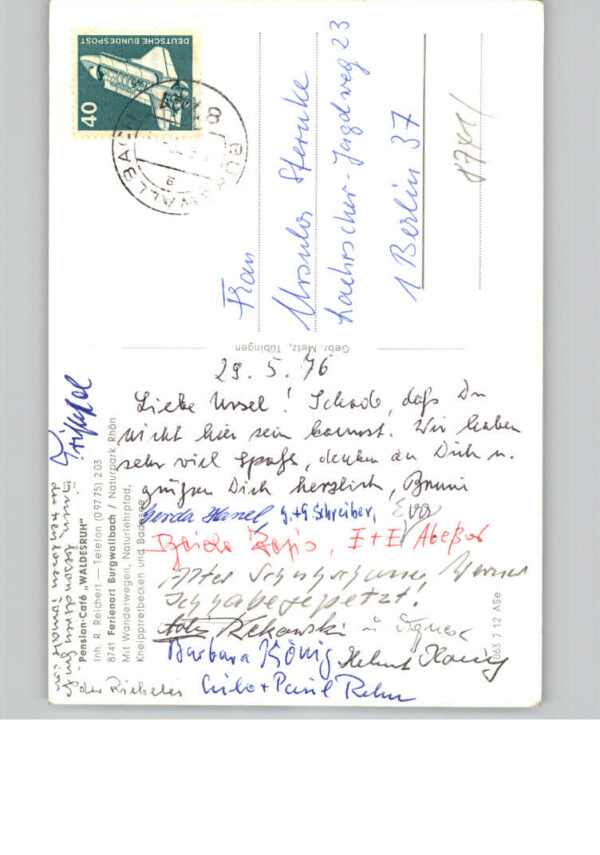 DEUTSCHE BUNDESPOST
40
BURGWALLBACH
Frau
Ursula Sternke
Laehrscher-Jagdweg 23
1 Berlin 37
Gebr. Metz, Tübingen
29.5.76
Liebe Ursel! Schade, daß Du
nicht hier sein kannst. Wir haben
sehr viel Spaß, denken an Dich u.
grüßen Dich herzlich, Bruni
Gerda Hanel, G.+G Schreiber, Eva
E+E Abeßer
Alter Werner
Rekowski u Agnes
Barbara König Helmut König
Paul Rehn
Pension-Café „WALDESRUH"
Inh. R. Reichert — Telefon (09775) 203
8741 Ferienort Burgwallbach / Naturpark Rhön
Mit Wanderwegen, Naturlehrpfad,
Kneipptretbecken und
063 J 12 ASe